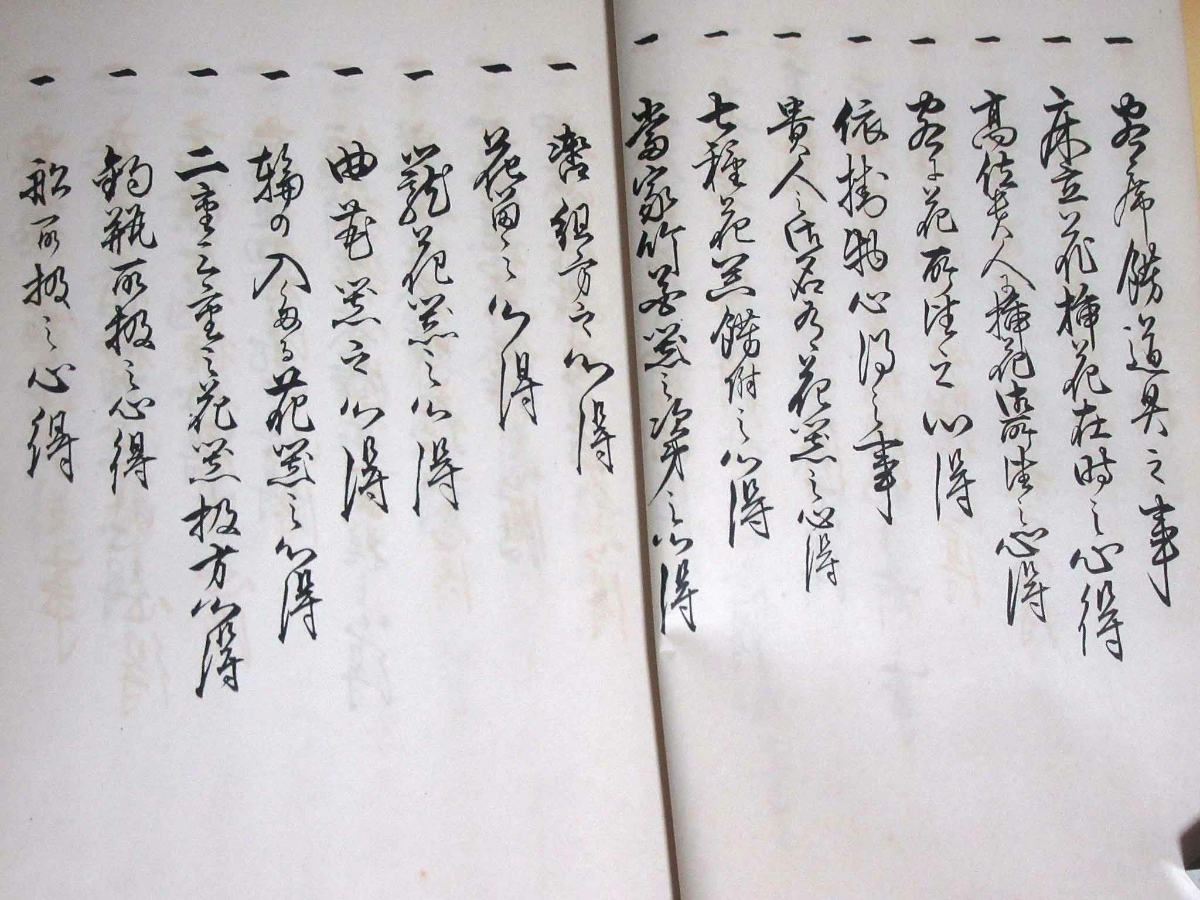 一 客席餝道具之事
一 床立花挿花在時之心得
一 高位貴人に挿花御所望之心得
一 客に花所望之心得
一 依掛物心得之事
一 貴人之御名有花器之心得
一 七種花器餝附之心得
一 当家竹花器之次第之心得
一 轡組方之心得
一 花留之心得
一 籠花器之心得
一 曲花器之心得
一 輪の入たる花器之心得
一 二重三重之花器扱方心得
一 釣瓶取扱之心得
一 船取扱之心得